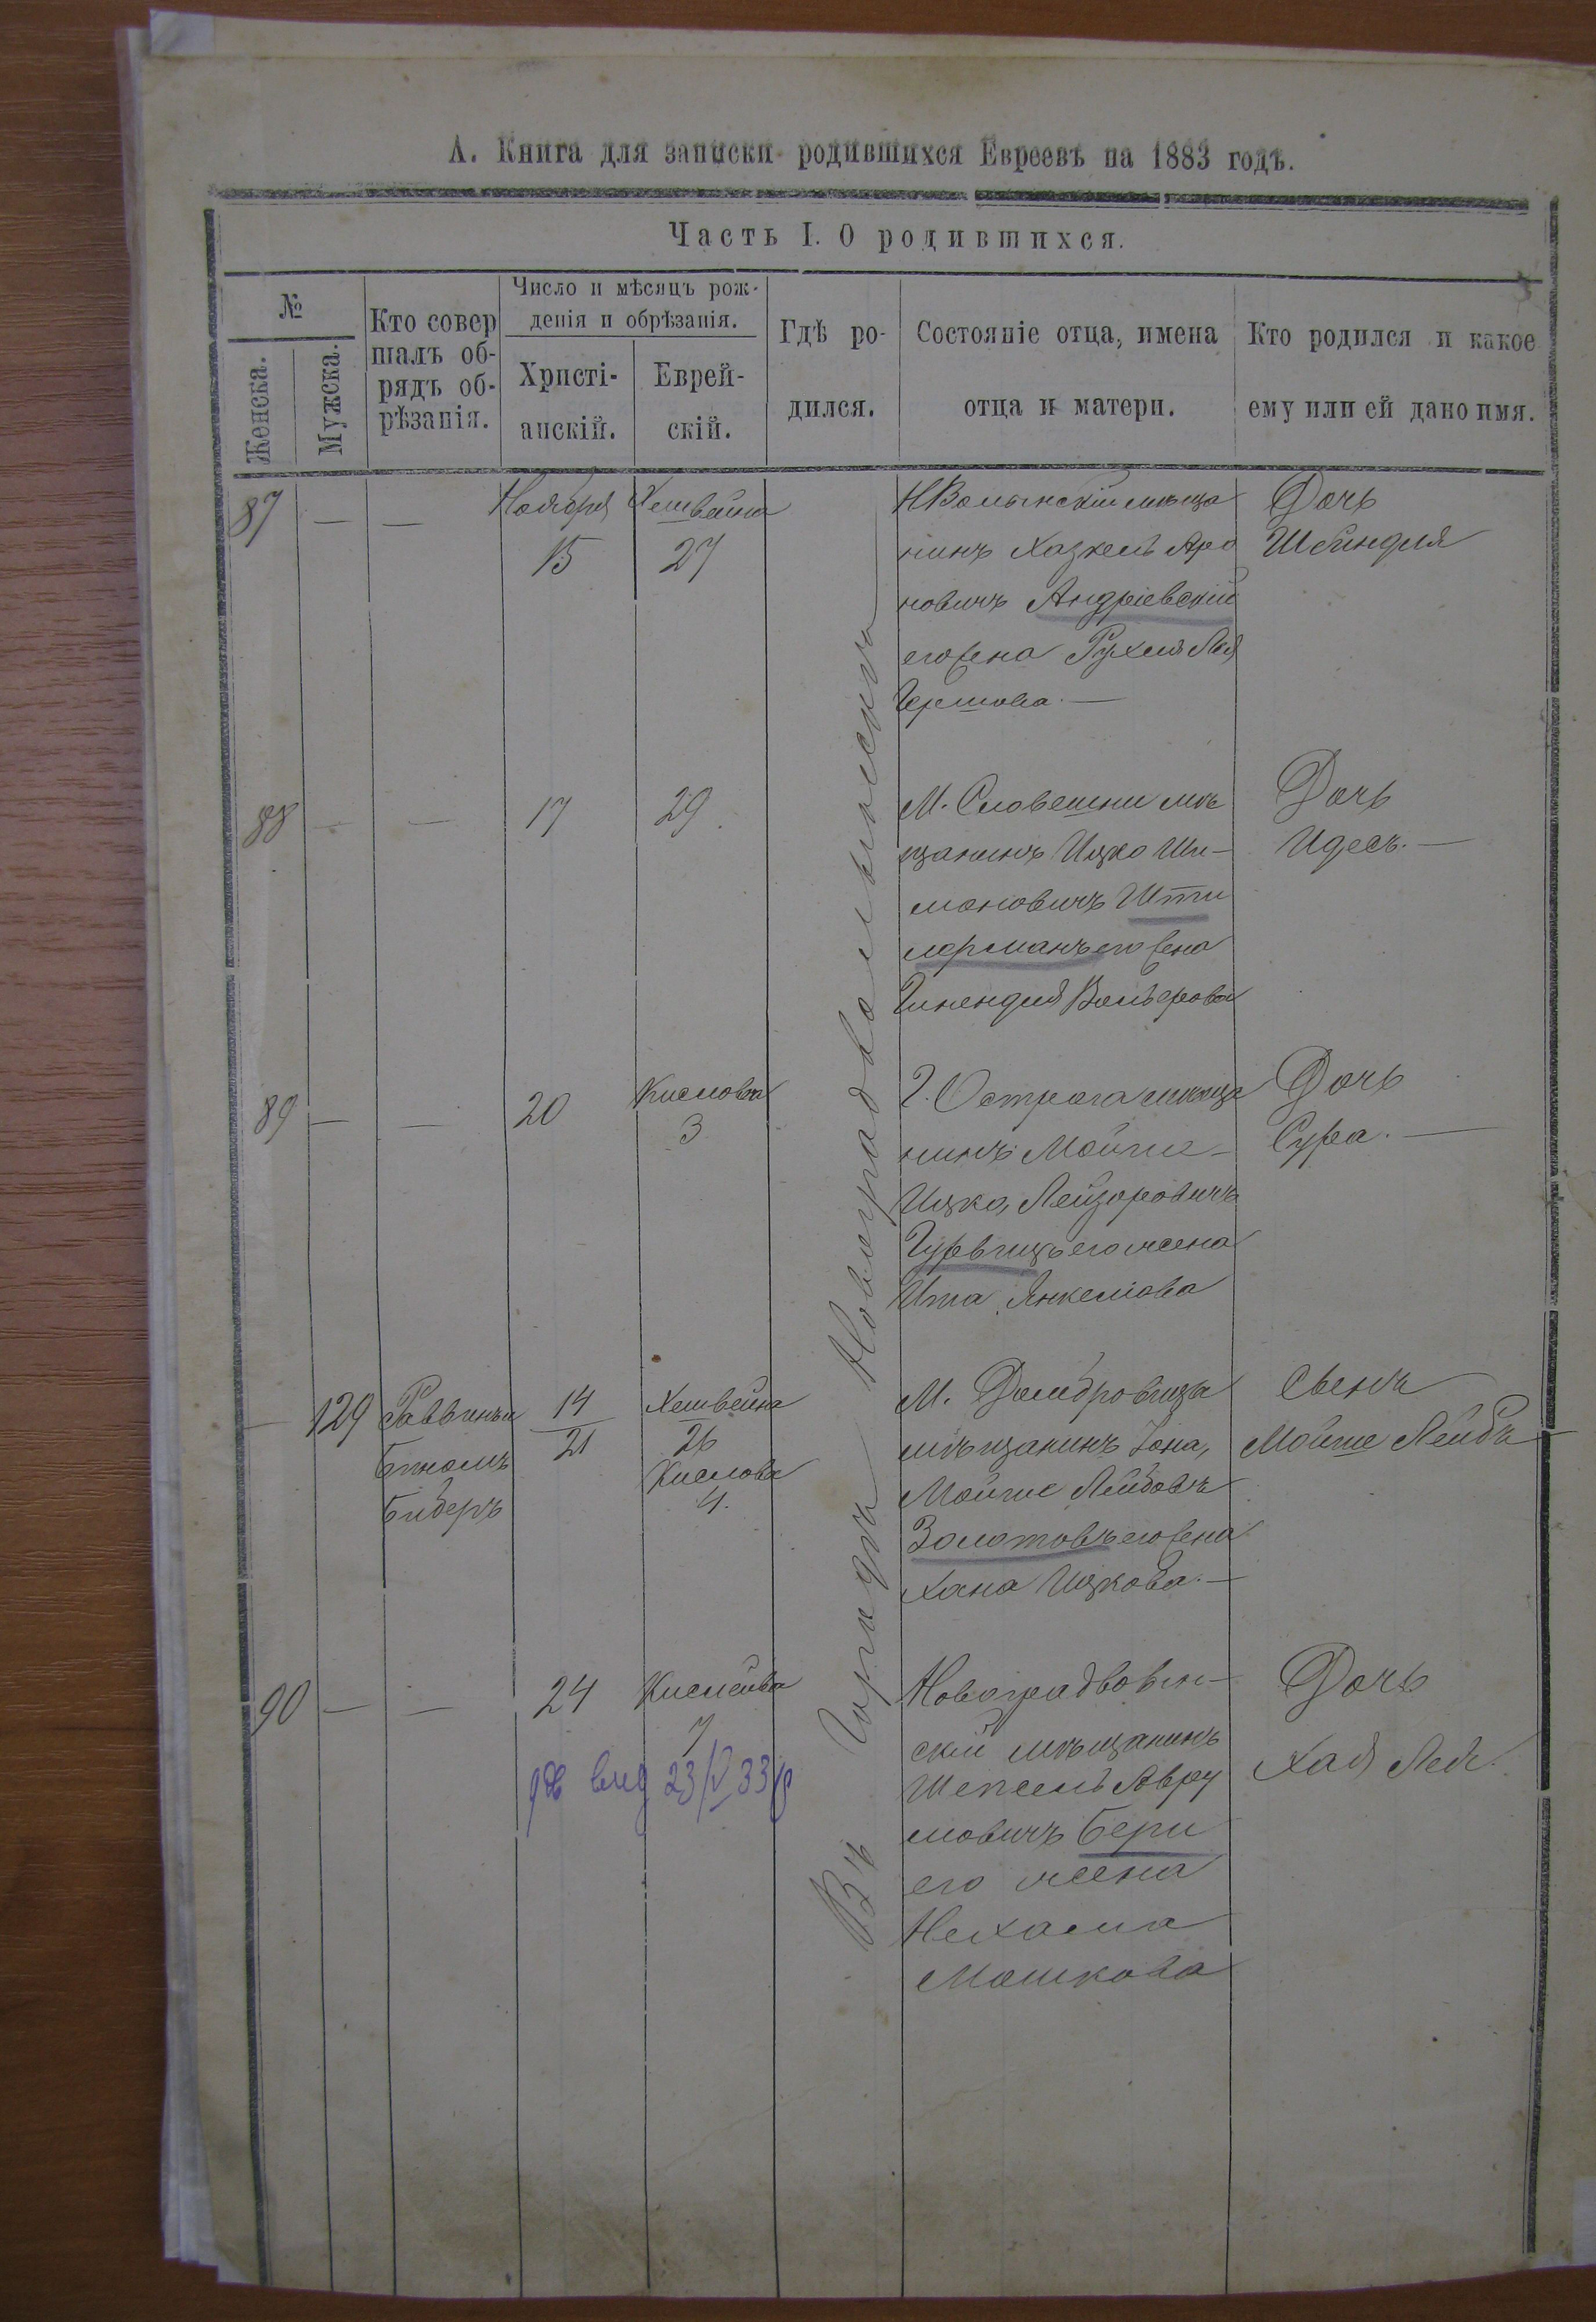 А. Книга для записки родившихся Евреевъ на 1883 годъ.
Часть I. О родившихся.
№
Женска.
Мужска.
Кто совер
шалъ об-
рядъ об-
рѣзанія.
Число и мѣсяцъ рож-
денія и обрѣзанія.
Христі-
анскій.
Еврей-
скій.
Гдѣ ро-
дился.
Состояніе отца, имена
отца и матери.
Кто родился и какое
ему или ей дано имя.
Въ Городѣ Новоградволынскѣ
87 — —
Ноября
15
Хешвана
27
НВолынскій мѣща
нинъ Хазкель Аро
новичъ Андріевскій
его жена Рухля Лея
Гершова. —
Дочь
Шейндля
88 — —
17
29.
М. Словешни мѣ
щанинъ Ицко Ши-
моновичъ Шти
лерманъ его жена
Гинендля Вольфова
Дочь
Идесъ. —
89 — —
20
Кислова
3
Г. Острога мѣща
нинъ Мойше-
Ицко, Лейзоровичъ
Гуревицъ его жена
Ита Янкелова
Дочь
Сура. —
— 129
Раввинъ
Биномъ
Бидеръ
14
21
Хешвена
26
Кислова
4.
М. Домбровица
мѣщанинъ Іона,
Мойше Лейбовъ
Золотовъ его жена
Хана Ицкова. —
Сынъ
Мойше Лейбъ —
90 — —
24
Кислева
7
23/V 33
Новоградволын-
скій мѣщанинъ
Шепсель Авру
мовичъ Бери
его жена
Нехама
Мошкова
Дочь
Хая Лея.